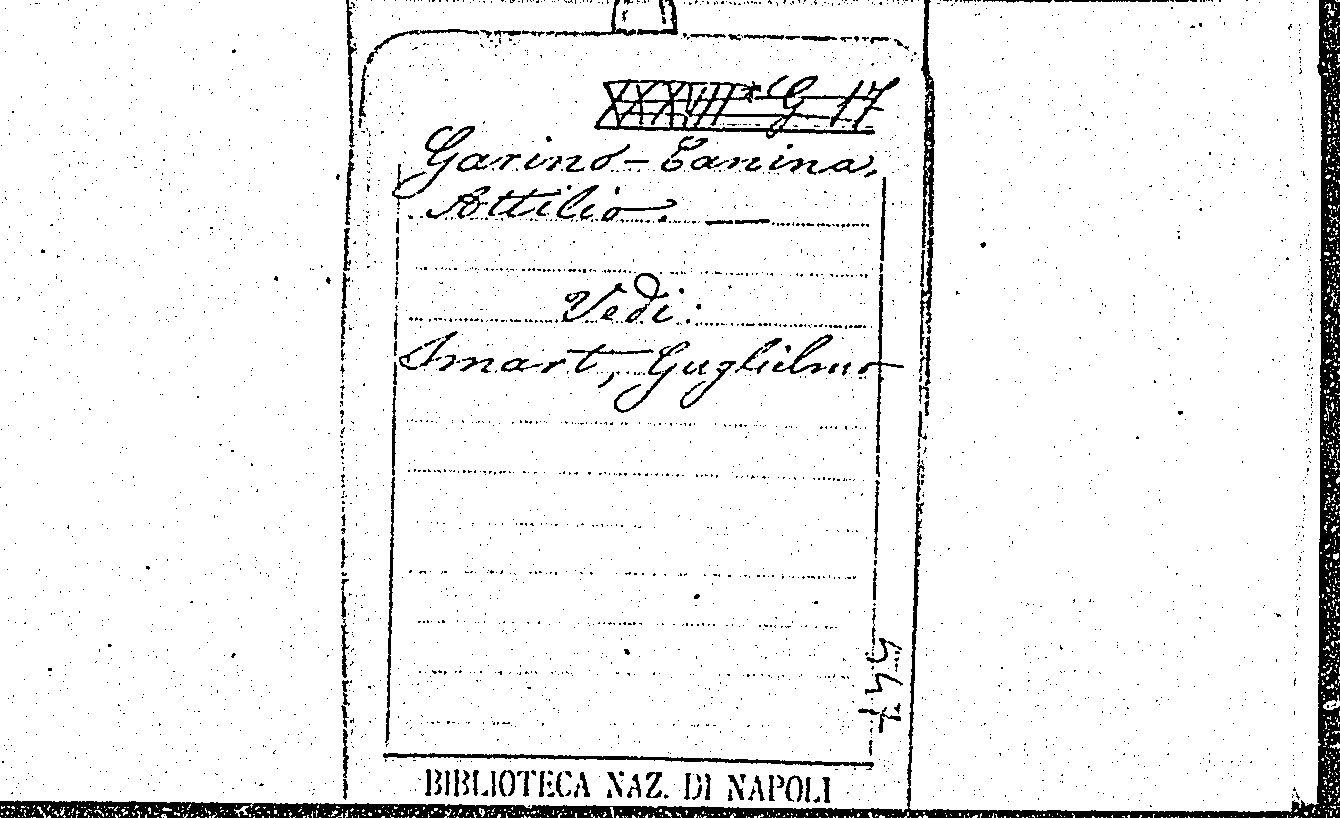 G 17
Garino-Canina,
Attilio. —
Vedi:
Smart, Guglielmo
BIBLIOTECA NAZ. DI NAPOLI